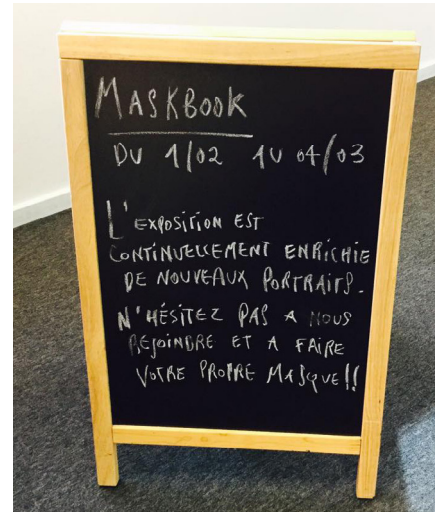 MASKBOOK
DU 1/02 AU 04/03
L'EXPOSITION EST
CONTINUELLEMENT ENRICHIE
DE NOUVEAUX PORTRAITS.
N'HÉSITEZ PAS A NOUS
REJOINDRE ET A FAIRE
VOTRE PROPRE MASQUE!!